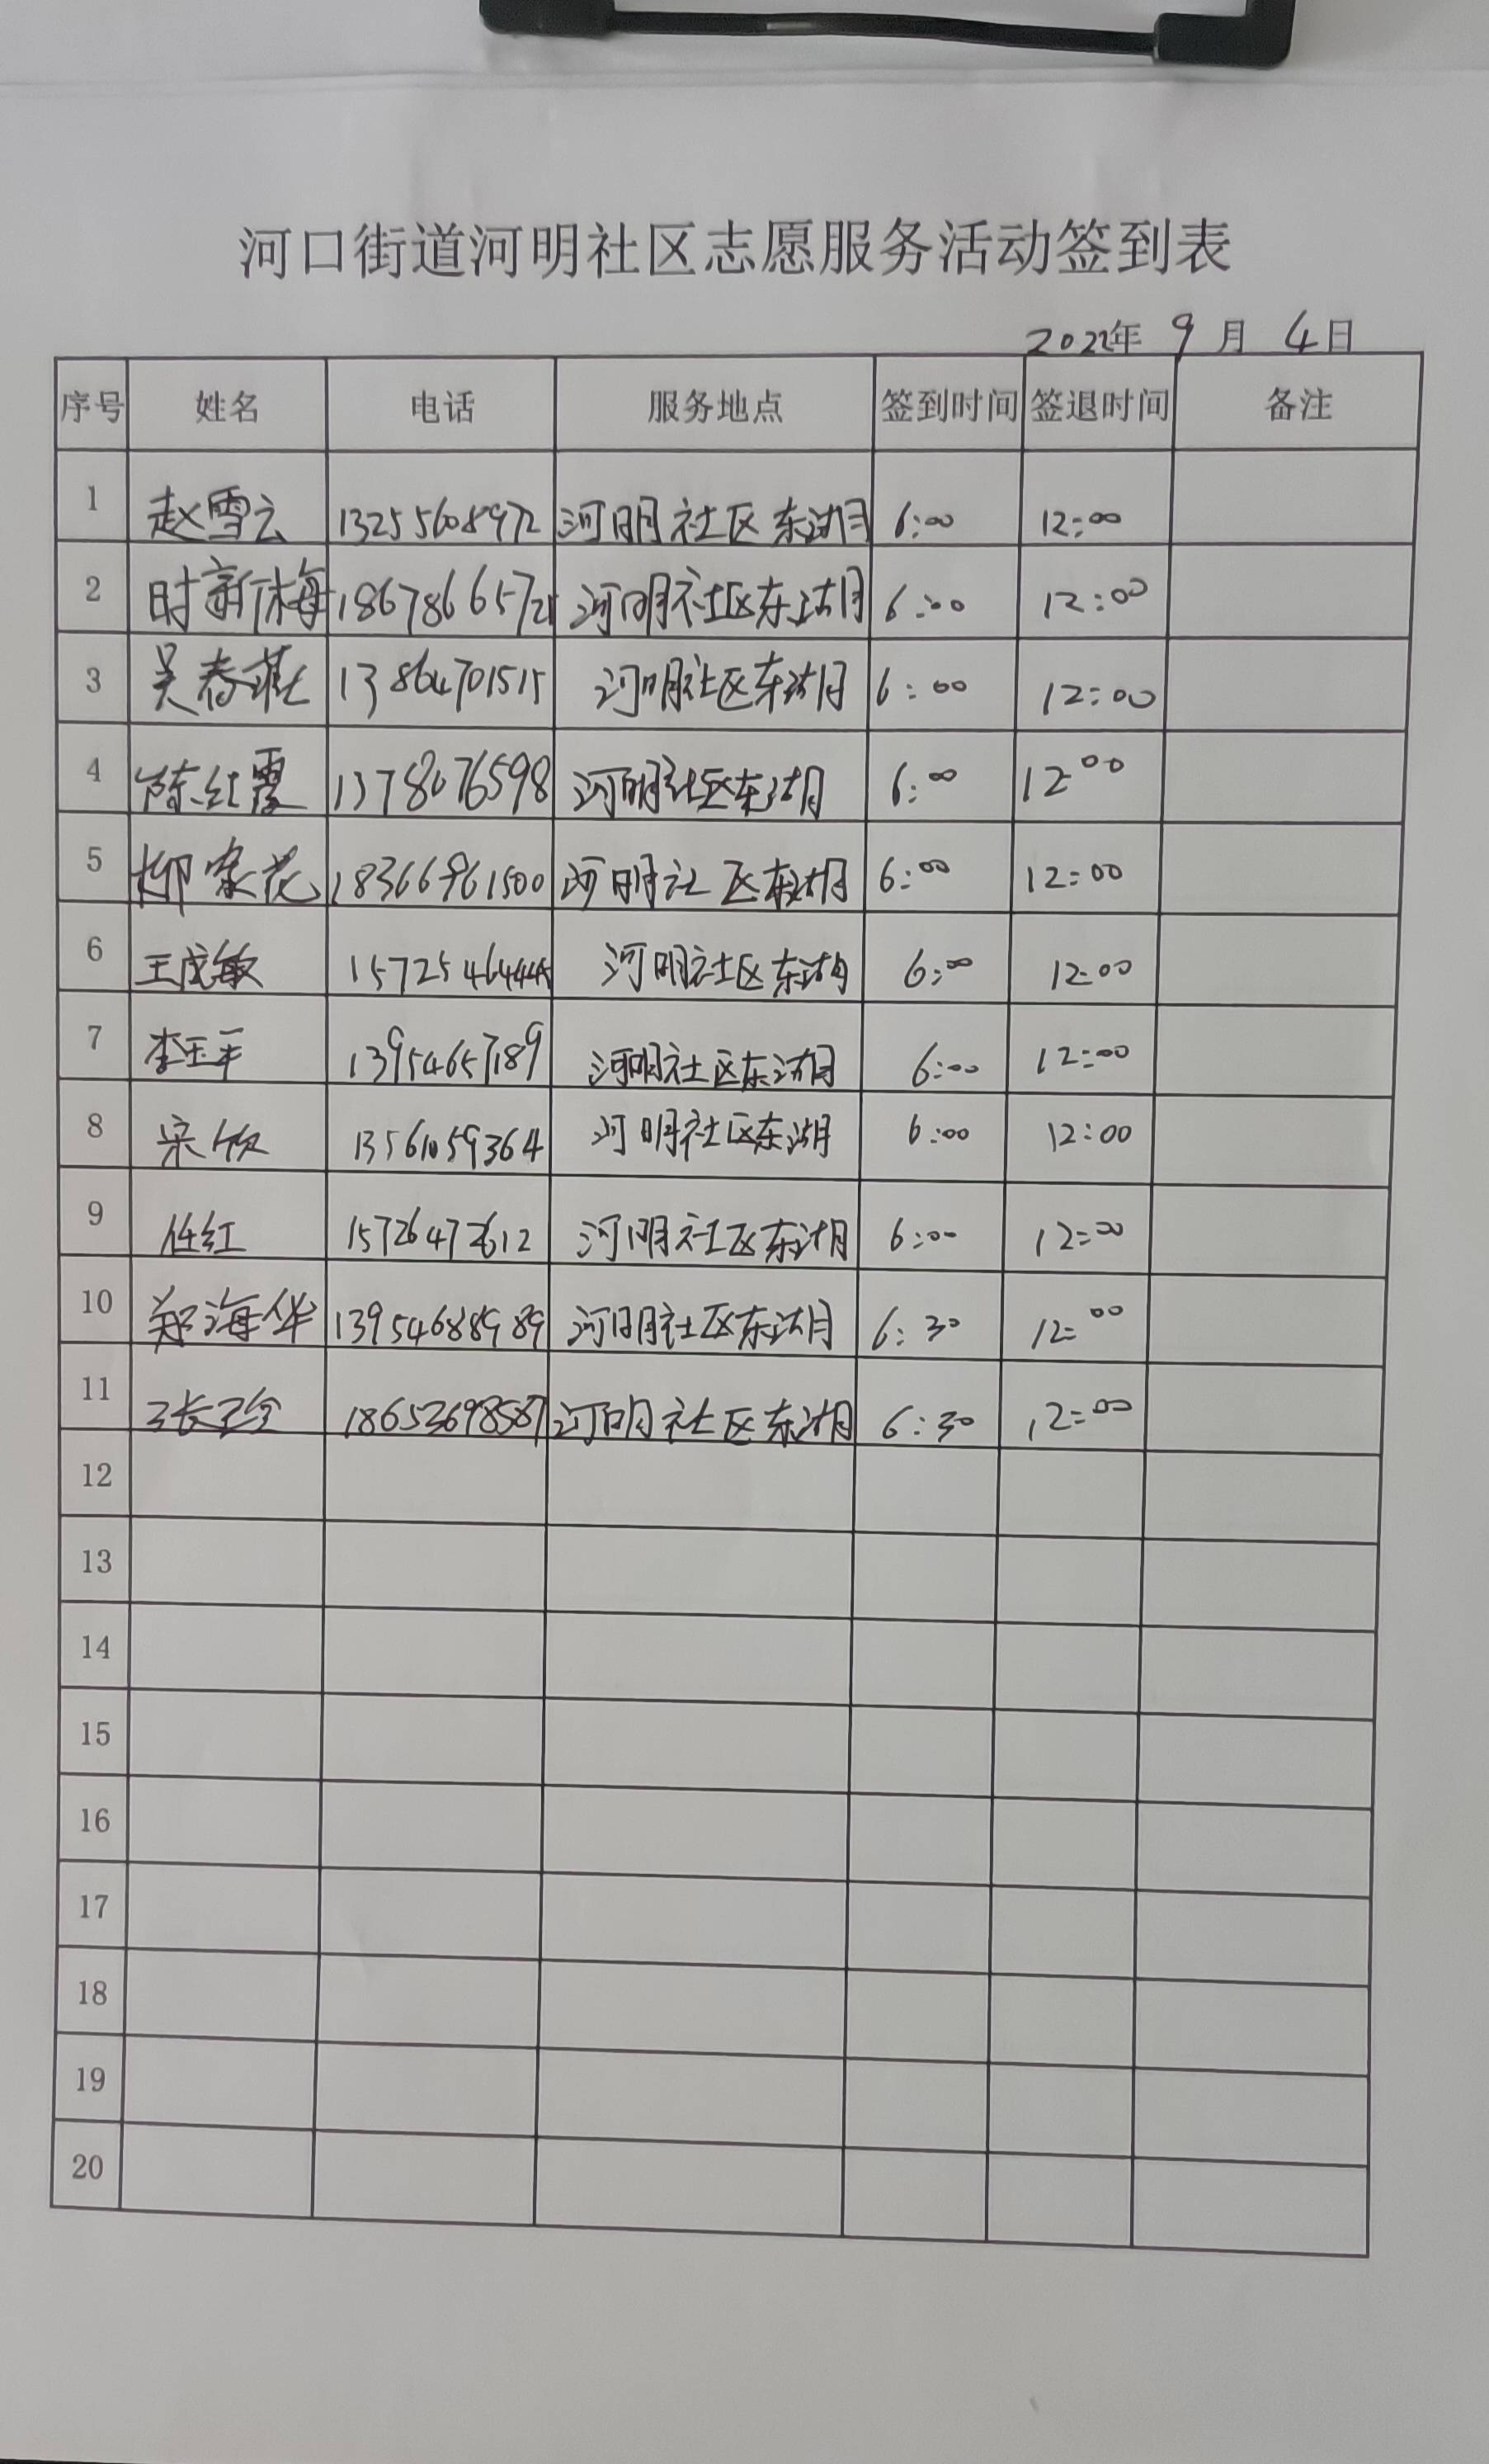 河口街道河明社区志愿服务活动签到表
2022年 9月 4日
序号 姓名 电话 服务地点 签到时间 签退时间 备注
1 赵雪云 13255608972 河明社区东湖 6:00 12:00
2 时新梅 河明社区东湖 6:00 12:00
3 吴春 13864701515 河明社区东湖 6:00 12:00
4 陈红霞 河明社区东湖 6:00 12:00
5 柳家花 18366961500 河明社区东湖 6:00 12:00
6 王成敏 河明社区东湖 6:00 12:00
7 李玉平 13954657189 河明社区东湖 6:00 12:00
8 宋欣 13561059364 河明社区东湖 6:00 12:00
9 任红 15726472612 河明社区东湖 6:00 12:00
10 郑海华 13954688989 河明社区东湖 6:30 12:00
11 18653698587 河明社区东湖 6:30 12:00
12
13
14
15
16
17
18
19
20